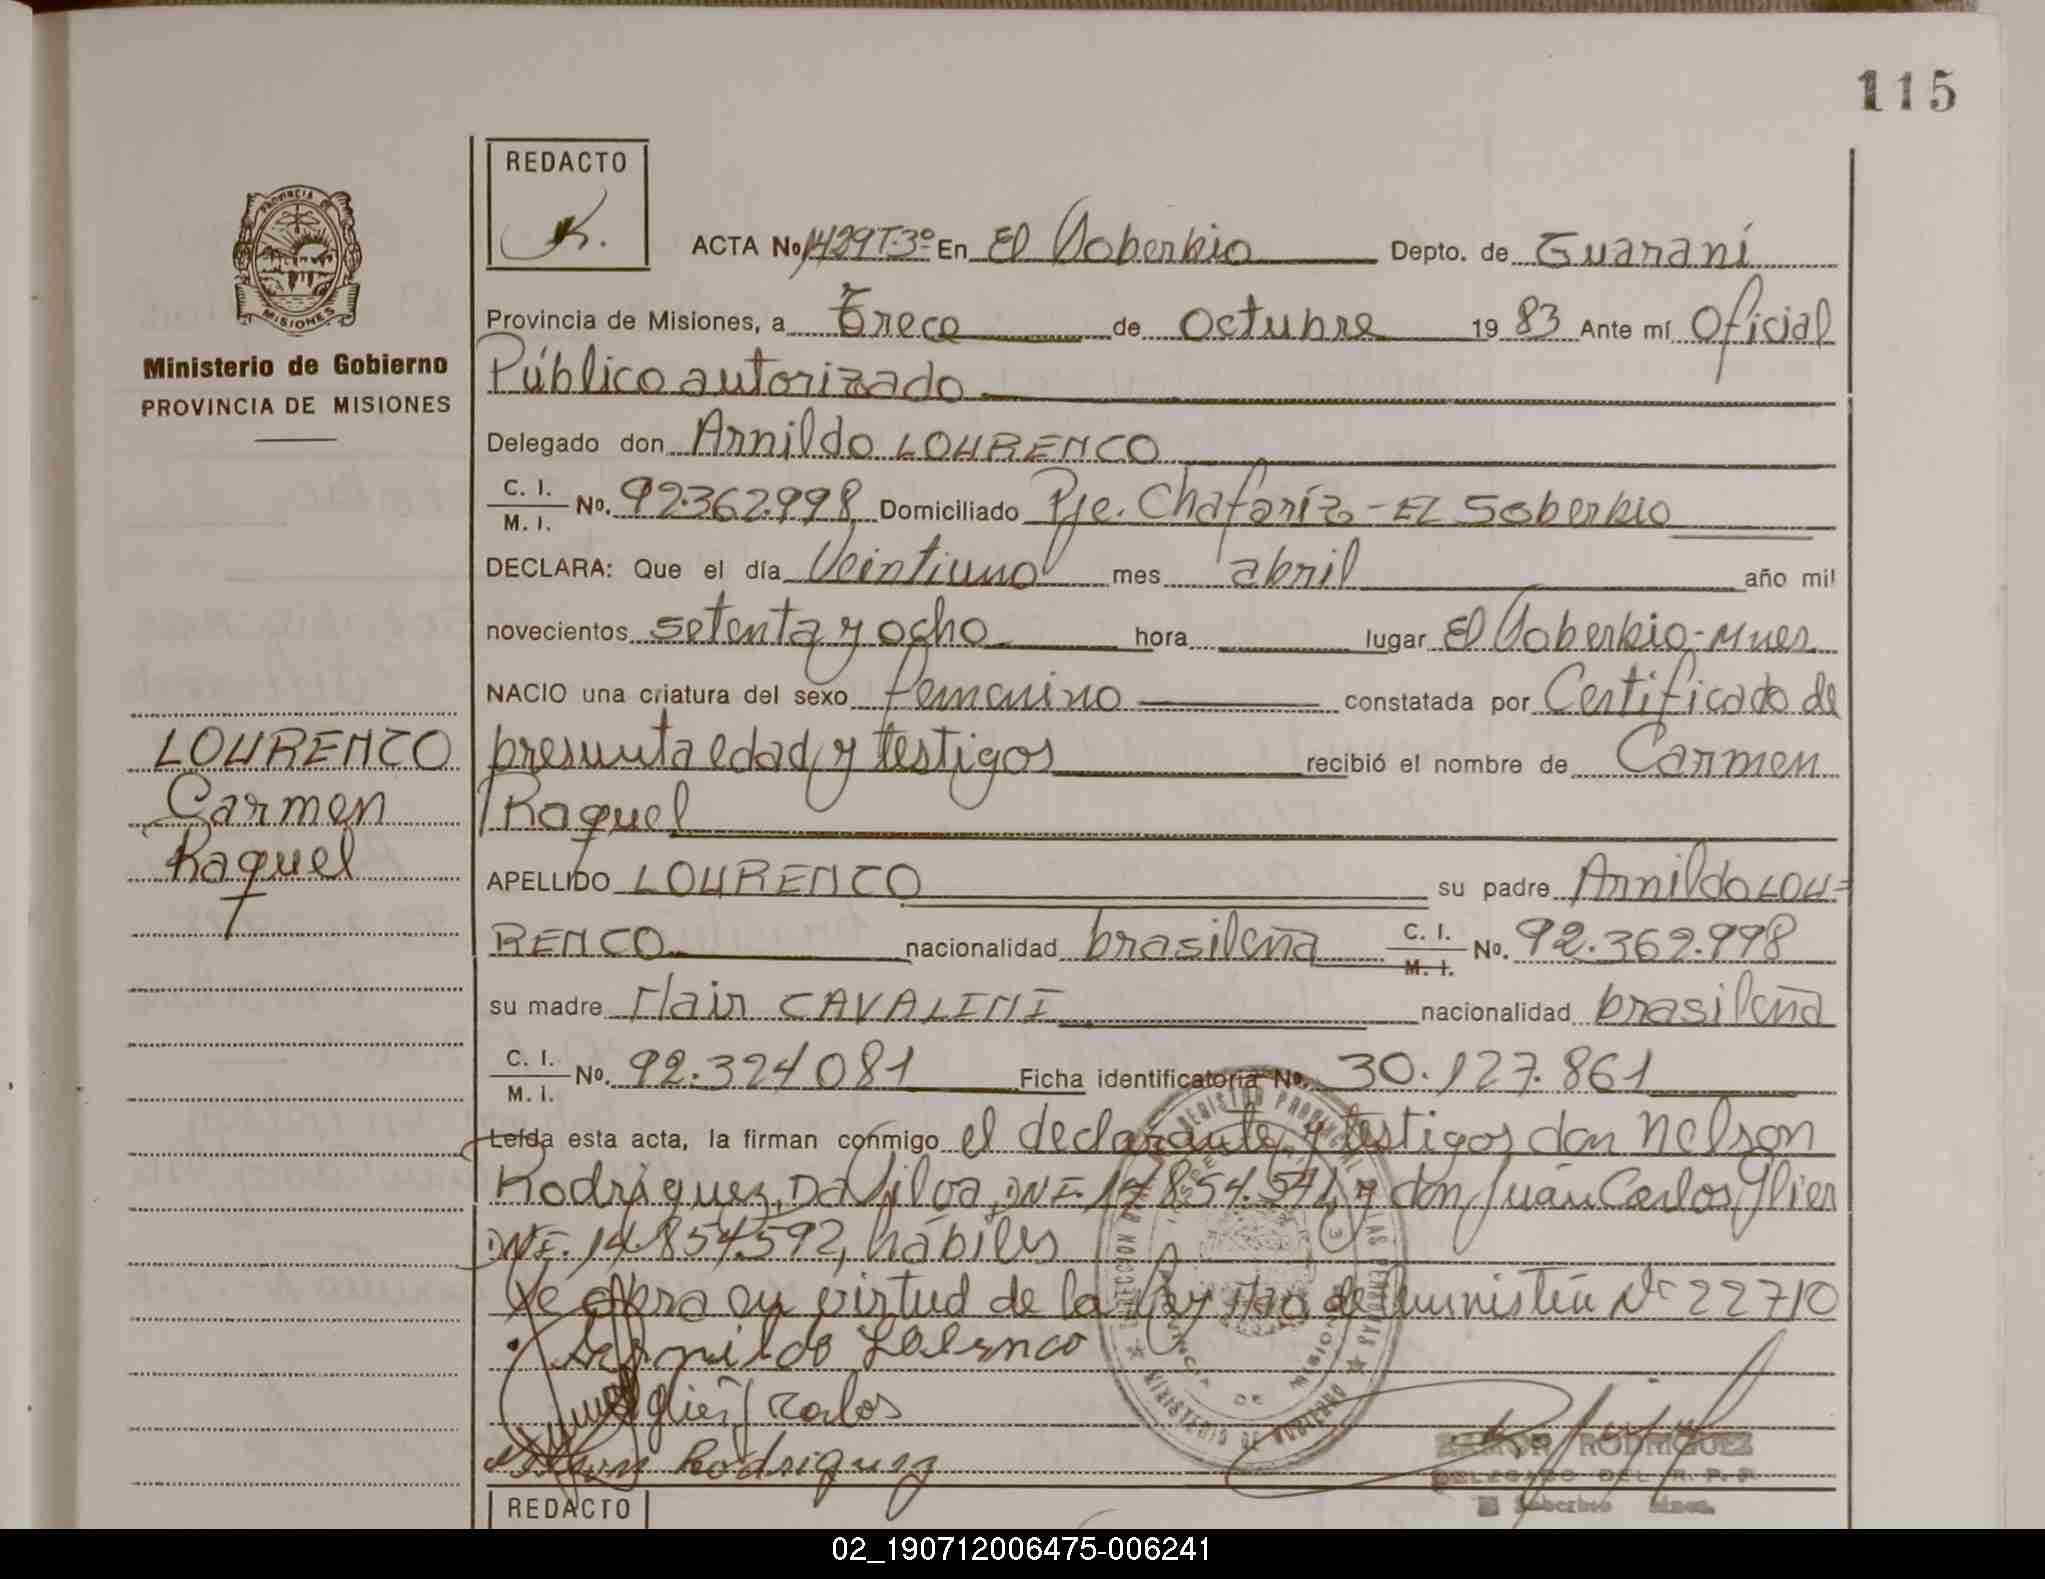 115
REDACTO
PROVINCIA DE
MISIONES
Ministerio de Gobierno
PROVINCIA DE MISIONES
ACTA No 1429 T.3º En El Soberbio Depto. de Guaraní
Provincia de Misiones, a Trece de octubre 19 83 Ante mí Oficial
Público autorizado
Delegado don Arnildo LOURENCO
C. I.
M. I. No. 92.362.998 Domiciliado Pje. Chafaríz - El Soberbio
DECLARA: Que el día Veintiuno mes abril año mil
novecientos setenta y ocho hora lugar El Soberbio-Mnes
NACIO una criatura del sexo femenino constatada por Certificado de
presunta edad y testigos recibió el nombre de Carmen
Raquel
LOURENCO
Carmen
Raquel
APELLIDO LOURENCO su padre Arnildo LOU=
RENCO nacionalidad brasileña C. I. M. I. No. 92.362.998
su madre Nair CAVALINI nacionalidad brasileña
C. I.
M. I. No. 92.324081 Ficha identificatoria No. 30.127.861
Leída esta acta, la firman conmigo el declarante y testigos don Nelson
Rodríguez Da Silva, DNI. 14.854.541 y don Juan Carlos Glier
DNI. 14.854.592, hábiles
Se labra en virtud de la Ley de Amnistía Nº 22710
Arnildo Lolenco
Glier Carlos
Rodriguez
RAMON RODRIGUEZ
DELEGADO DEL R. P. P.
El Soberbio Mnes.
REDACTO
02_190712006475-006241